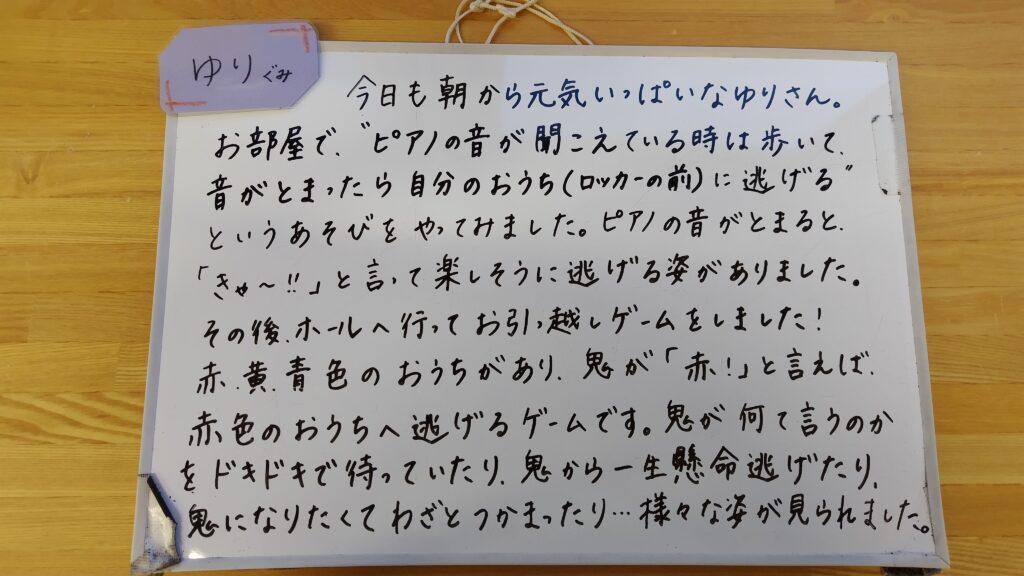 ゆりぐみ
今日も朝から元気いっぱいなゆりさん。
お部屋で、“ピアノの音が聞こえている時は歩いて、
音がとまったら自分のおうち(ロッカーの前)に逃げる”
というあそびをやってみました。ピアノの音がとまると、
「きゃ~!!」と言って楽しそうに逃げる姿がありました。
その後、ホールへ行ってお引っ越しゲームをしました!
赤、黄、青色のおうちがあり、鬼が「赤!」と言えば、
赤色のおうちへ逃げるゲームです。鬼が何て言うのか
をドキドキで待っていたり、鬼から一生懸命逃げたり、
鬼になりたくてわざとつかまったり…様々な姿が見られました。